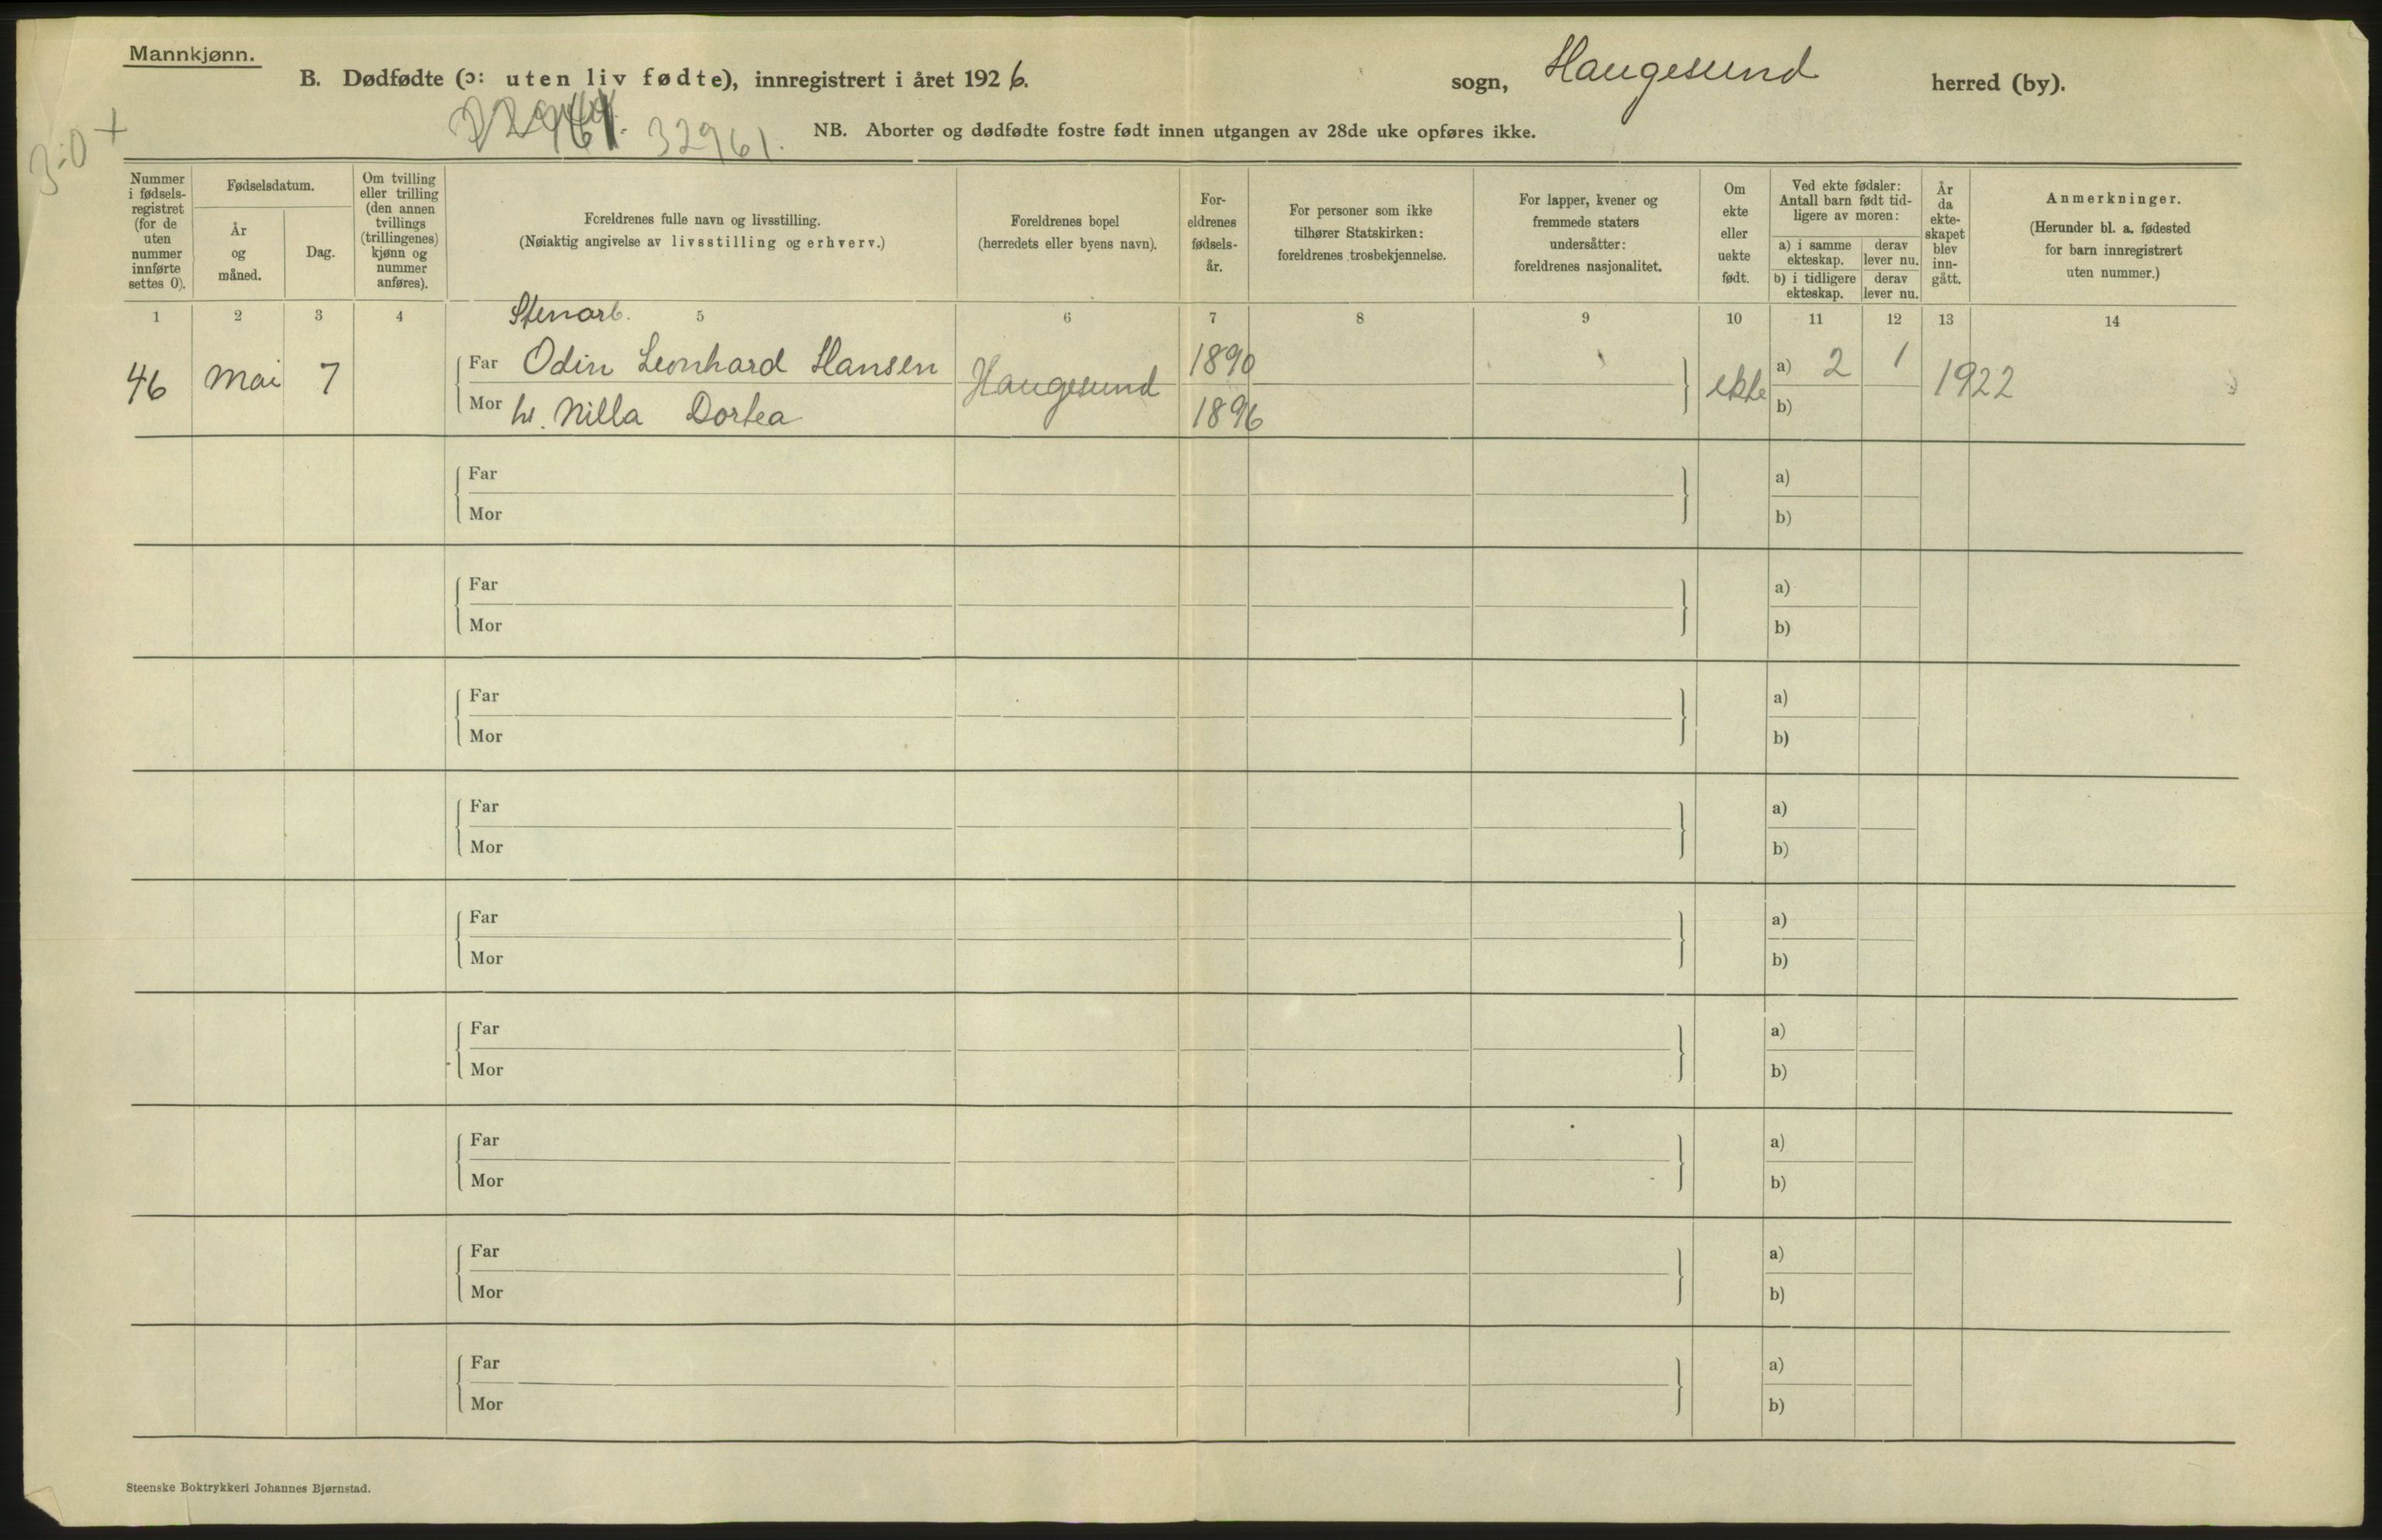 Mannkjønn.
B. Dødfødte (ɔ: uten liv fødte), innregistrert i året 1926. sogn, Haugesund herred (by).
32961. NB. Aborter og dødfødte fostre født innen utgangen av 28de uke opføres ikke.
3:0 +
Nummer i fødsels-registret (for de uten nummer innførte settes 0).
Fødselsdatum.
År og måned.
Dag.
Om tvilling eller trilling (den annen tvillings (trillingenes) kjønn og nummer anføres).
Foreldrenes fulle navn og livsstilling.
(Nøiaktig angivelse av livsstilling og erhverv.)
Foreldrenes bopel
(herredets eller byens navn).
For-eldrenes fødsels-år.
For personer som ikke tilhører Statskirken: foreldrenes trosbekjennelse.
For lapper, kvener og fremmede staters undersåtter: foreldrenes nasjonalitet.
Om ekte eller uekte født.
Ved ekte fødsler: Antall barn født tid-ligere av moren:
a) i samme ekteskap. derav lever nu.
b) i tidligere ekteskap. derav lever nu.
År da ekte-skapet blev inn-gått.
Anmerkninger.
(Herunder bl. a. fødested for barn innregistrert uten nummer.)
1 2 3 4 5 6 7 8 9 10 11 12 13 14
Stenarb.
46 Mai 7 Far Odin Leonhard Hansen Haugesund 1890 ekte a) 2 1 1922
Mor h. Nilla Dortea 1896 b)
Far a)
Mor b)
Far a)
Mor b)
Far a)
Mor b)
Far a)
Mor b)
Far a)
Mor b)
Far a)
Mor b)
Far a)
Mor b)
Far a)
Mor b)
Far a)
Mor b)
Steenske Boktrykkeri Johannes Bjørnstad.